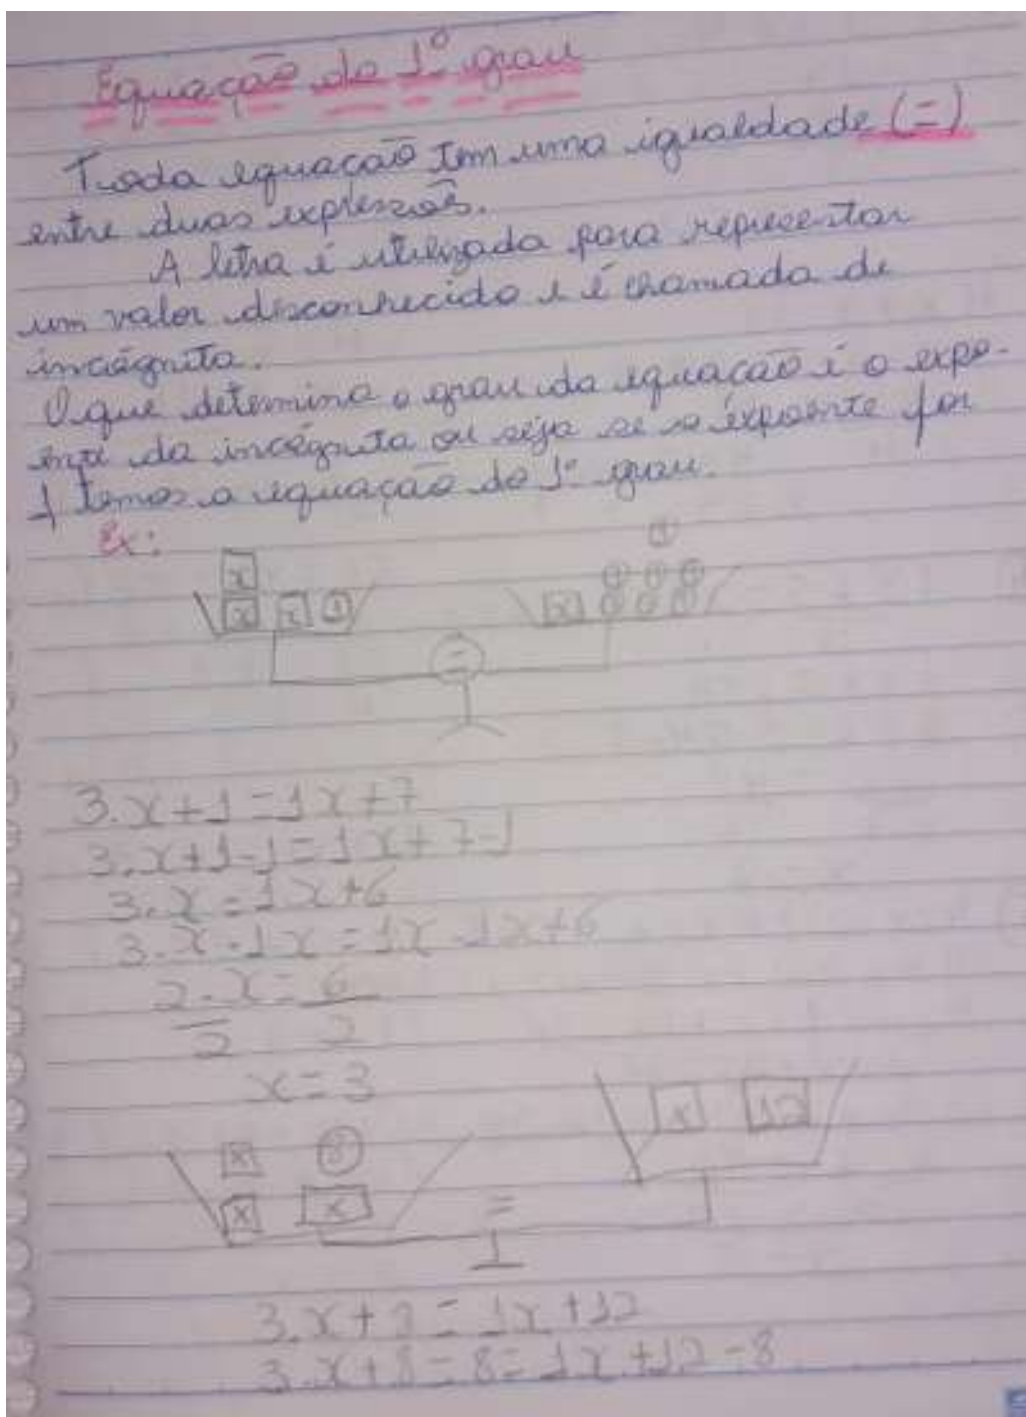 Equação do 1º grau
Toda equação tem uma igualdade (=)
entre duas expressões.
A letra é utilizada para representar
um valor desconhecido e é chamada de
incógnita.
O que determina o grau da equação é o expo-
ente da incógnita ou seja se o expoente for
1 temos a equação do 1º grau.
Ex:
1
x 1 1 1
x x 1 x 1 1 1
=
3.x+1=1x+7
3.x+1-1=1x+7-1
3.x=1x+6
3.x-1x=1x-1x+6
2.x=6
2 2
x=3
x 12
x 8
x x
=
3.x+8=1x+12
3.x+8-8=1x+12-8